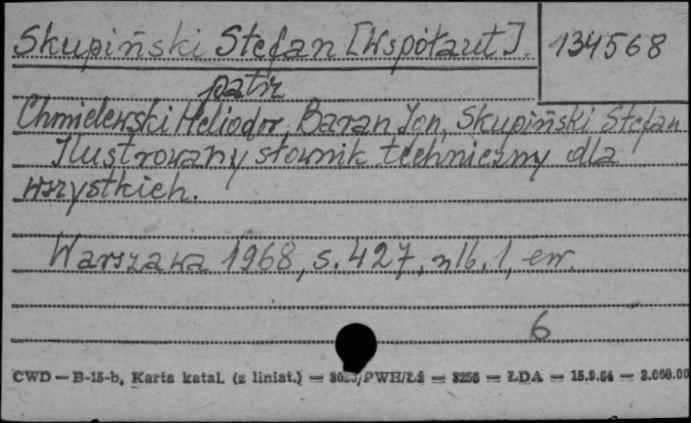 Skupiński Stefan [Współaut]. 134568
patrz
Chmielewski Heliodor, Baran Jon, Skupiński Stefan
Ilustrowany słownik techniczny dla
wszystkich.
Warszawa 1968, s. 427, nlb. 1, err.
6
CWD — B-15-b, Karta katal. (z liniat.) — PWH/Łż — 3256 — ŁDA — 15.9.64 — 2.000.00